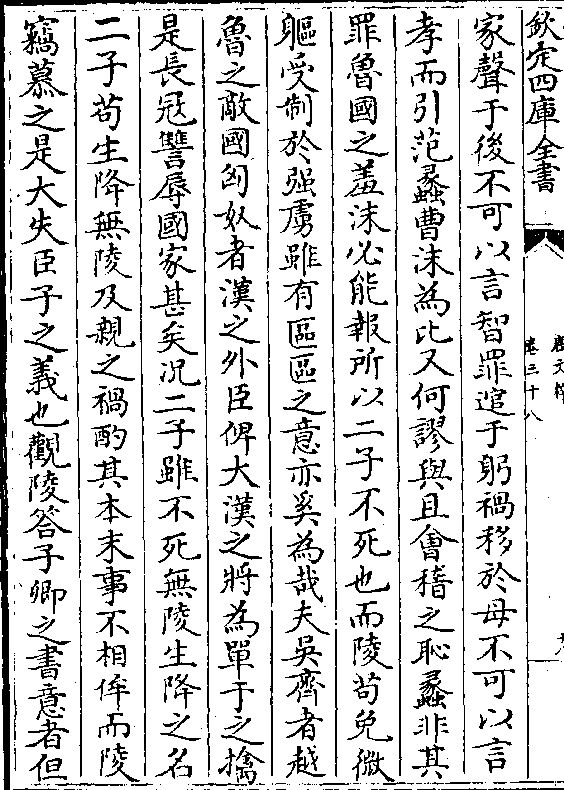 欽定四庫全書
唐文粹
卷三十八
家聲于後不可以言智罪逭于躬禍移於母不可以言
孝而引范蠡曹沬為比又何謬與且會稽之恥蠡非其
罪魯國之羞沬必能報所以二子不死也而陵苟免微
軀受制於强虜雖有區區之意亦奚為哉夫吳齊者越
魯之敵國匈奴者漢之外臣俾大漢之將為單于之擒
是長冦讐辱國家甚矣况二子雖不死無陵生降之名
二子苟生降無陵及親之禍酌其本末事不相侔而陵
竊慕之是大失臣子之義也觀陵答子卿之書意者但